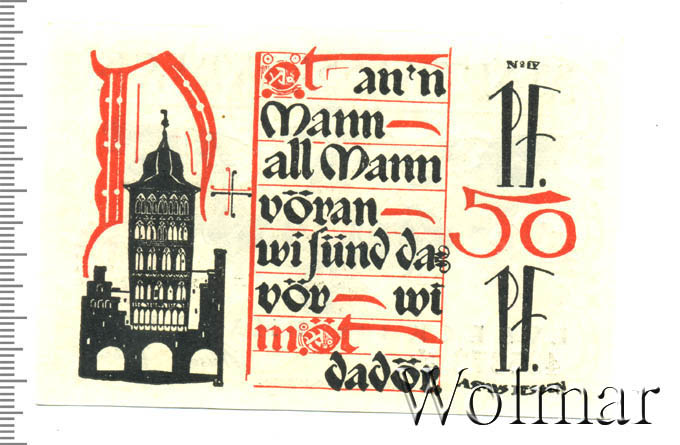 an'n
Mann—
all Mann
vöran—
wi sünd da=
vör— wi
möt
dadör.
No IV
PF.
50
PF.
Wolmar